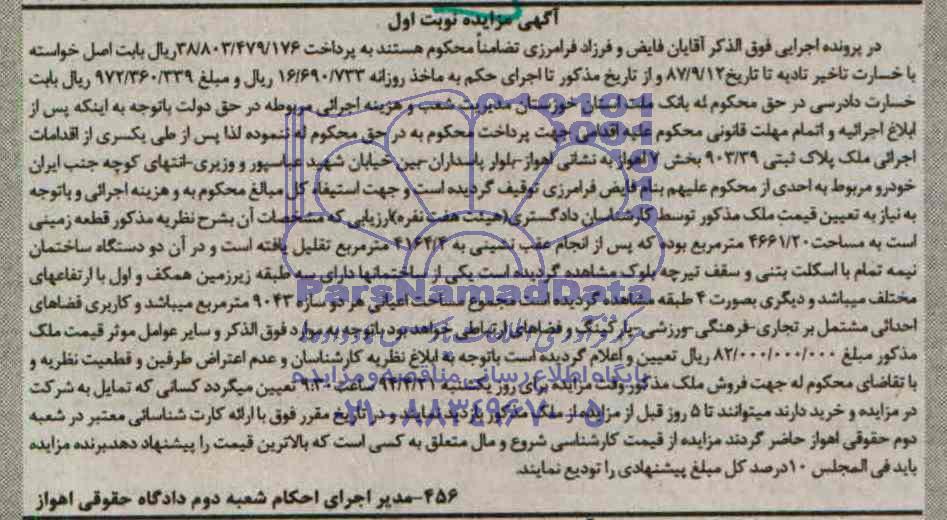 آگهی مزایده نوبت اول
در پرونده اجرایی فوق الذکر آقایان فایض و فرزاد فرامرزی تضامناً محکوم هستند به پرداخت ۳۸/۸۰۳/۴۷۹/۱۷۶ریال بابت اصل خواسته
با خسارت تاخیر تادیه تا تاریخ۸۷/۹/۱۲ و از تاریخ مذکور تا اجرای حکم به ماخذ روزانه ۱۶/۶۹۰/۷۳۳ ریال و مبلغ ۹۷۲/۳۶۰/۳۳۹ ریال بابت
خسارت دادرسی در حق محکوم له بانک ملت استان خوزستان مدیریت شعب و هزینه اجرائی مربوطه در حق دولت باتوجه به اینکه پس از
ابلاغ اجرائیه و اتمام مهلت قانونی محکوم علیه اقدامی جهت پرداخت محکوم به در حق محکوم له ننموده لذا پس از طی یکسری از اقدامات
اجرائی ملک پلاک ثبتی ۹۰۳/۳۹ بخش ۷ اهواز به نشانی اهواز-بلوار پاسداران-بین خیابان شهید عباسپور و وزیری-انتهای کوچه جنب ایران
خودرو مربوط به احدی از محکوم علیهم بنام فایض فرامرزی توقیف گردیده است و جهت استیفاء کل مبالغ محکوم به و هزینه اجرائی و باتوجه
به نیاز به تعیین قیمت ملک مذکور توسط کارشناسان دادگستری(هیئت هفت نفره)ارزیابی که مشخصات آن بشرح نظریه مذکور قطعه زمینی
است به مساحت۴۶۶۱/۲۰ مترمربع بوده که پس از انجام عقب نشینی به ۴۱۶۴/۴ مترمربع تقلیل یافته است و در آن دو دستگاه ساختمان
نیمه تمام با اسکلت بتنی و سقف تیرچه بلوک مشاهده گردیده است یکی از ساختمانها دارای سه طبقه زیرزمین همکف و اول با ارتفاعهای
مختلف میباشد و دیگری بصورت ۴ طبقه مشاهده گردیده است مجموع مساحت اعیانی هر دو سازه ۹۰۴۳ مترمربع میباشد و کاربری فضاهای
احداثی مشتمل بر تجاری-فرهنگی-ورزشی-پارکینگ و فضاهای ارتباطی خواهد بود باتوجه به موارد فوق الذکر و سایر عوامل موثر قیمت ملک
مذکور مبلغ ۸۲/۰۰۰/۰۰۰/۰۰۰ ریال تعیین و اعلام گردیده است باتوجه به ابلاغ نظریه کارشناسان و عدم اعتراض طرفین و قطعیت نظریه و
با تقاضای محکوم له جهت فروش ملک مذکور وقت مزایده برای روز یکشنبه ساعت ۹:۳۰ تعیین میگردد کسانی که تمایل به شرکت
در مزایده و خرید دارند میتوانند تا ۵ روز قبل از مزایده از ملک مذکور بازدید نمایند و در تاریخ مقرر فوق با ارائه کارت شناسائی معتبر در شعبه
دوم حقوقی اهواز حاضر گردند مزایده از قیمت کارشناسی شروع و مال متعلق به کسی است که بالاترین قیمت را پیشنهاد دهد.برنده مزایده
باید فی المجلس ۱۰درصد کل مبلغ پیشنهادی را تودیع نمایند.
۴۵۶-مدیر اجرای احکام شعبه دوم دادگاه حقوقی اهواز
ParsNamadData
پایگاه اطلاع رسانی مناقصه و مزایده
۰۲۱-۸۸۳۴۹۶۷۰-۵